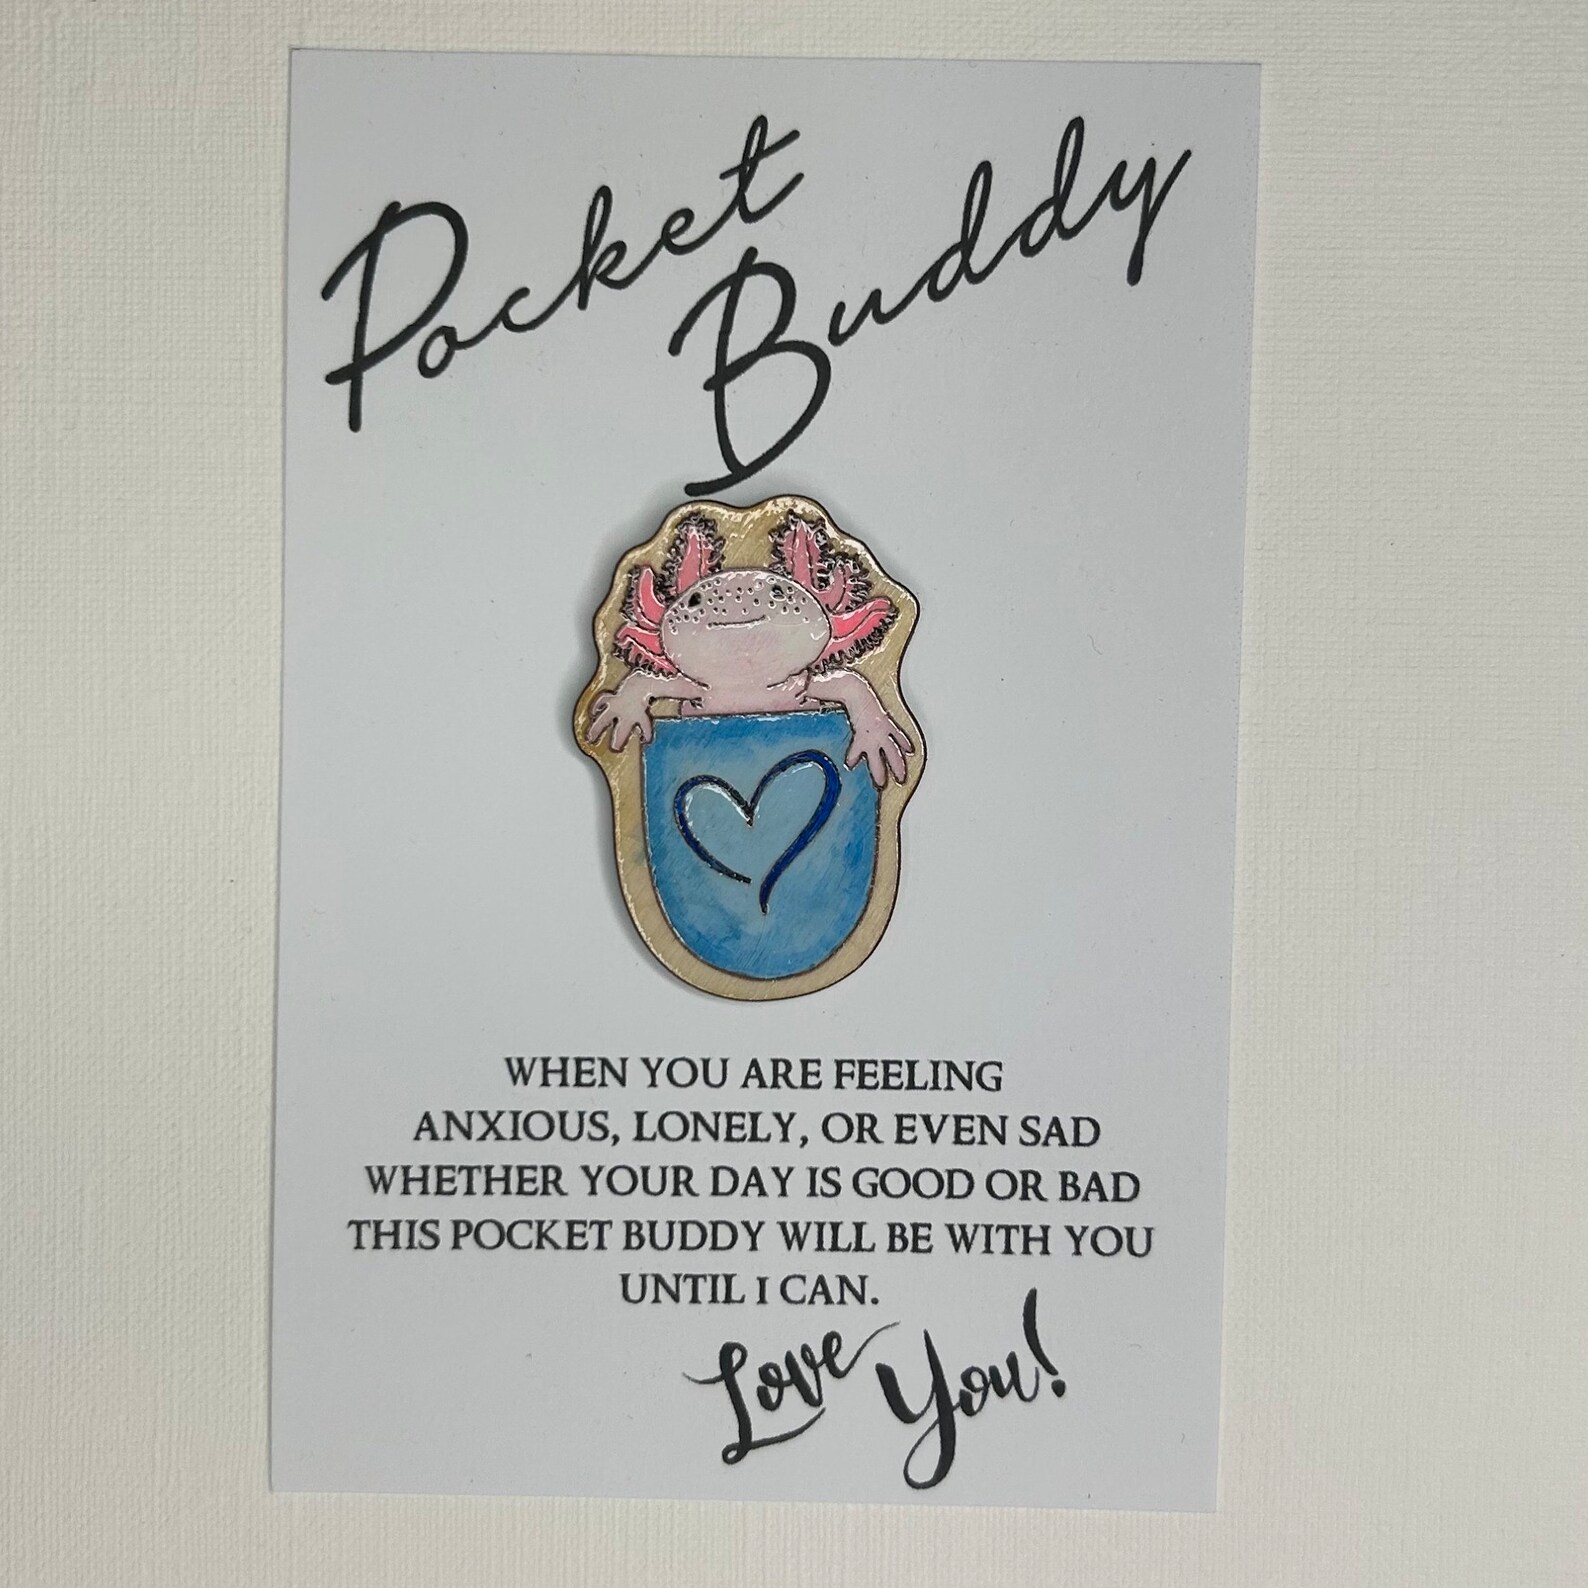 Pocket
Buddy
WHEN YOU ARE FEELING
ANXIOUS, LONELY, OR EVEN SAD
WHETHER YOUR DAY IS GOOD OR BAD
THIS POCKET BUDDY WILL BE WITH YOU
UNTIL I CAN.
Love You!